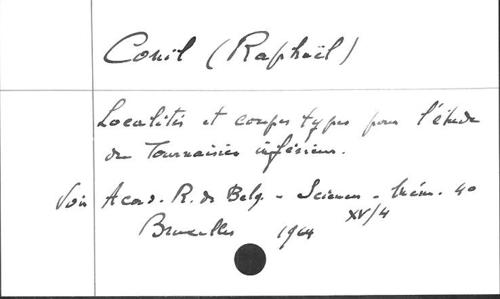 Conil (Raphaël)
Localités et coupes types pour l'étude
du Tournaisien inférieur.
Voir Acad. R. de Belg. - Sciences - Mém. 40
XV/4
Bruxelles 1964